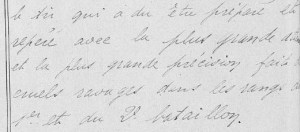 le tir qui a du être préparé et
repéré avec la plus grande
et la plus grande précision fait de
cruels ravages dans les rangs du
1er et du 2e bataillon.